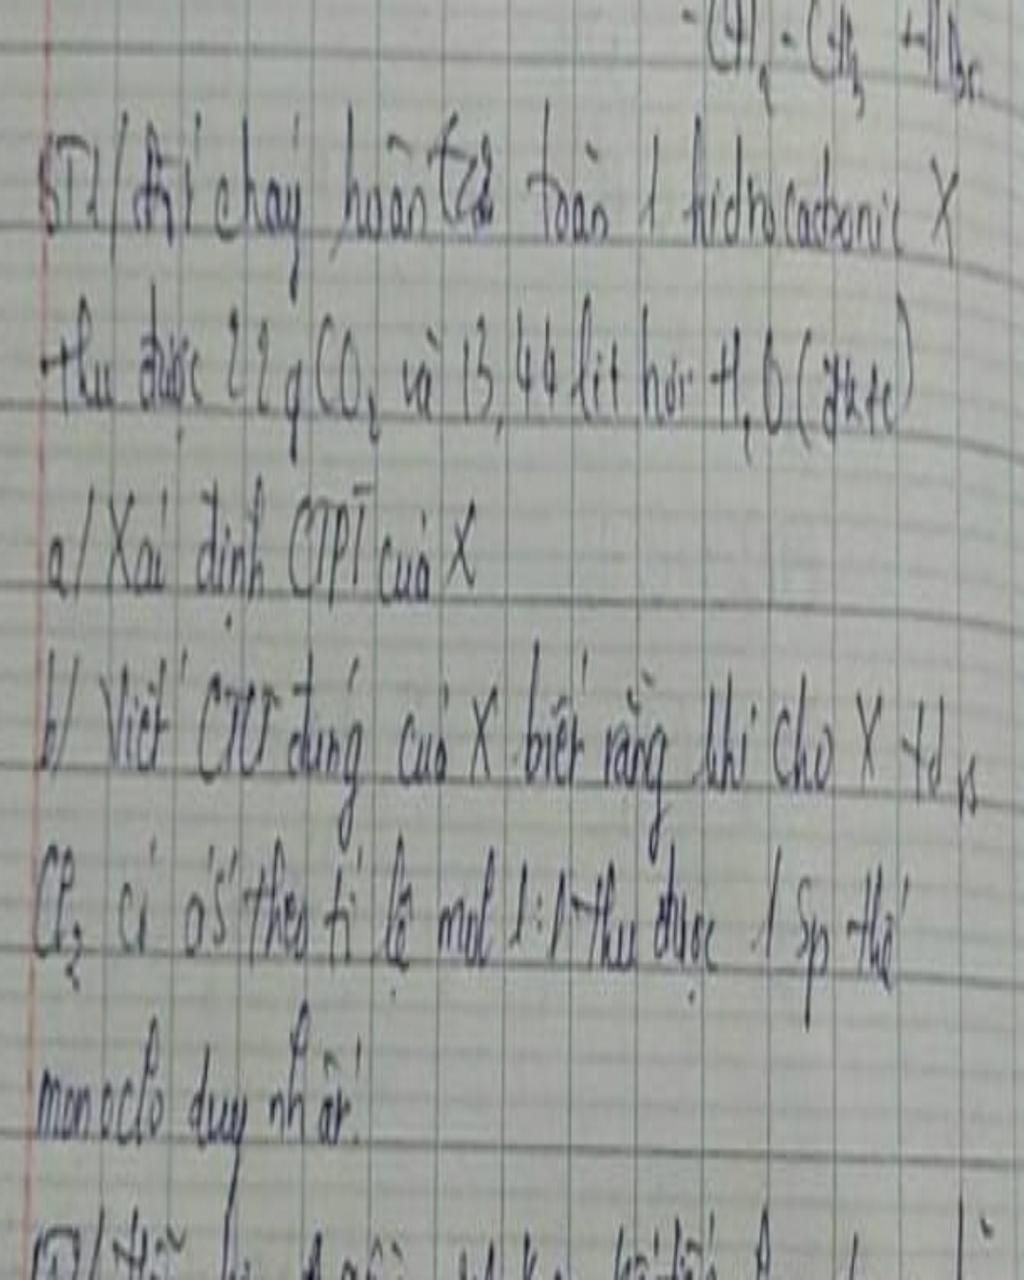 -CH2-CH3 +HBr
BT1/ Đốt cháy hoàn toàn 1 hidrocacbonic X
thu được 22g CO2 và 13,44 lít hơi H2O (đktc)
a/ Xái định CTPT của X
b/ Viết CTCT đúng của X biết rằng khi cho X td vs
Cl2 có ás theo tỉ lệ mol 1:1 thu được 1 sp thế
monoclo duy nhất.